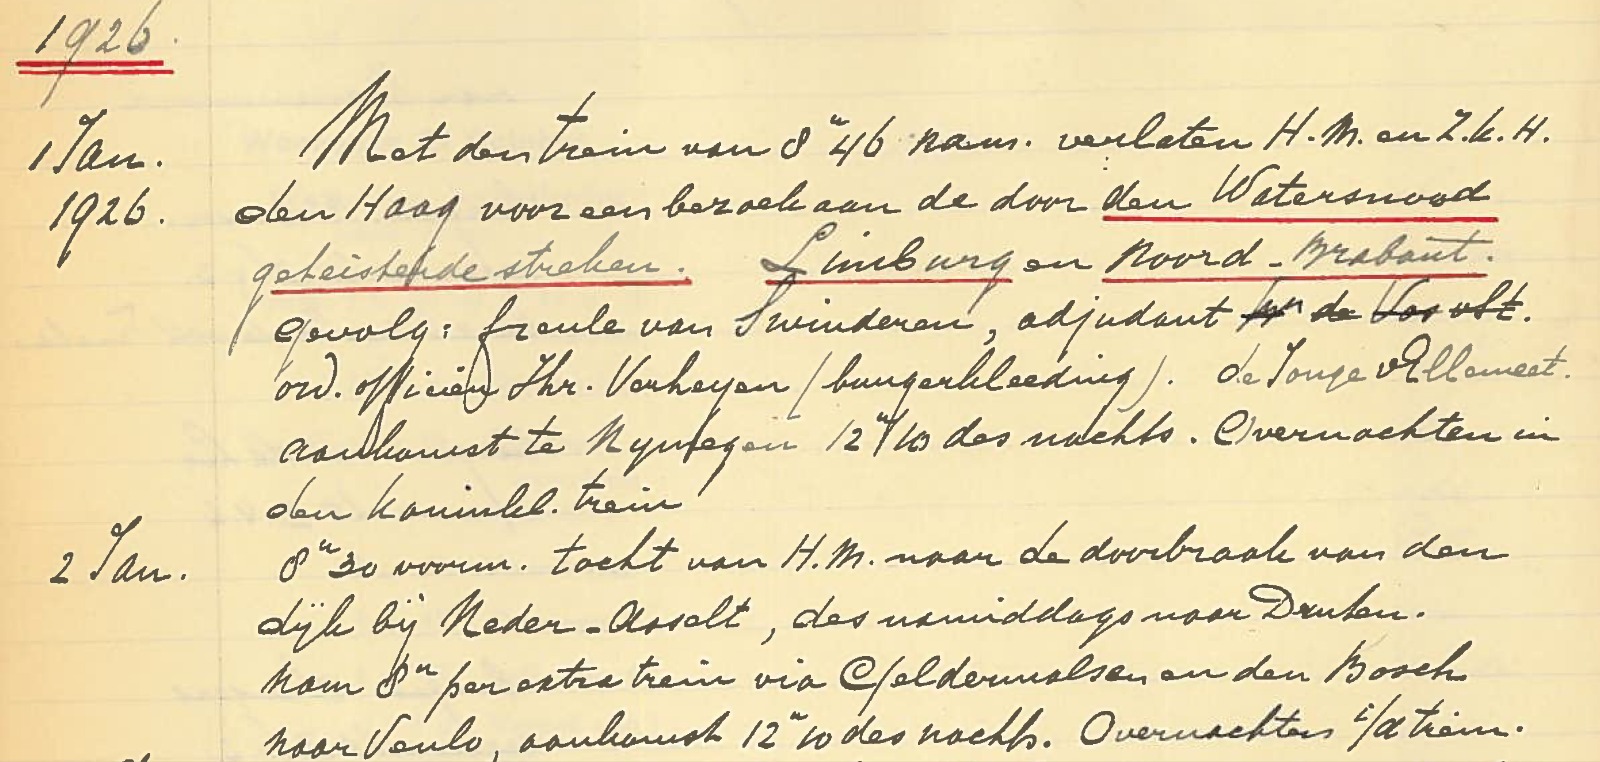 1926.
1 Jan. Met den trein van 8u 46 nam. verlaten H.M. en Z.K.H.
1926. den Haag voor een bezoek aan de door den Watersnood
geteisterde streken. Limburg en Noord-Brabant.
Gevolg: freule van Swinderen, adjudant de Vos vSt.
ord. officier Jhr. Verheyen (burgerkleeding). de Jonge vEllemeet.
aankomst te Nymegen 12u 10 des nachts. Overnachten in
den koninkl. trein
2 Jan. 8u 30 voorm. tocht van H.M. naar de doorbraak van den
dijk bij Neder-Asselt, des namiddags naar Druten.
nam 8u per extra trein via Geldermalsen en den Bosch
naar Venlo, aankomst 12u 10 des nachts. Overnachten i/d trein.